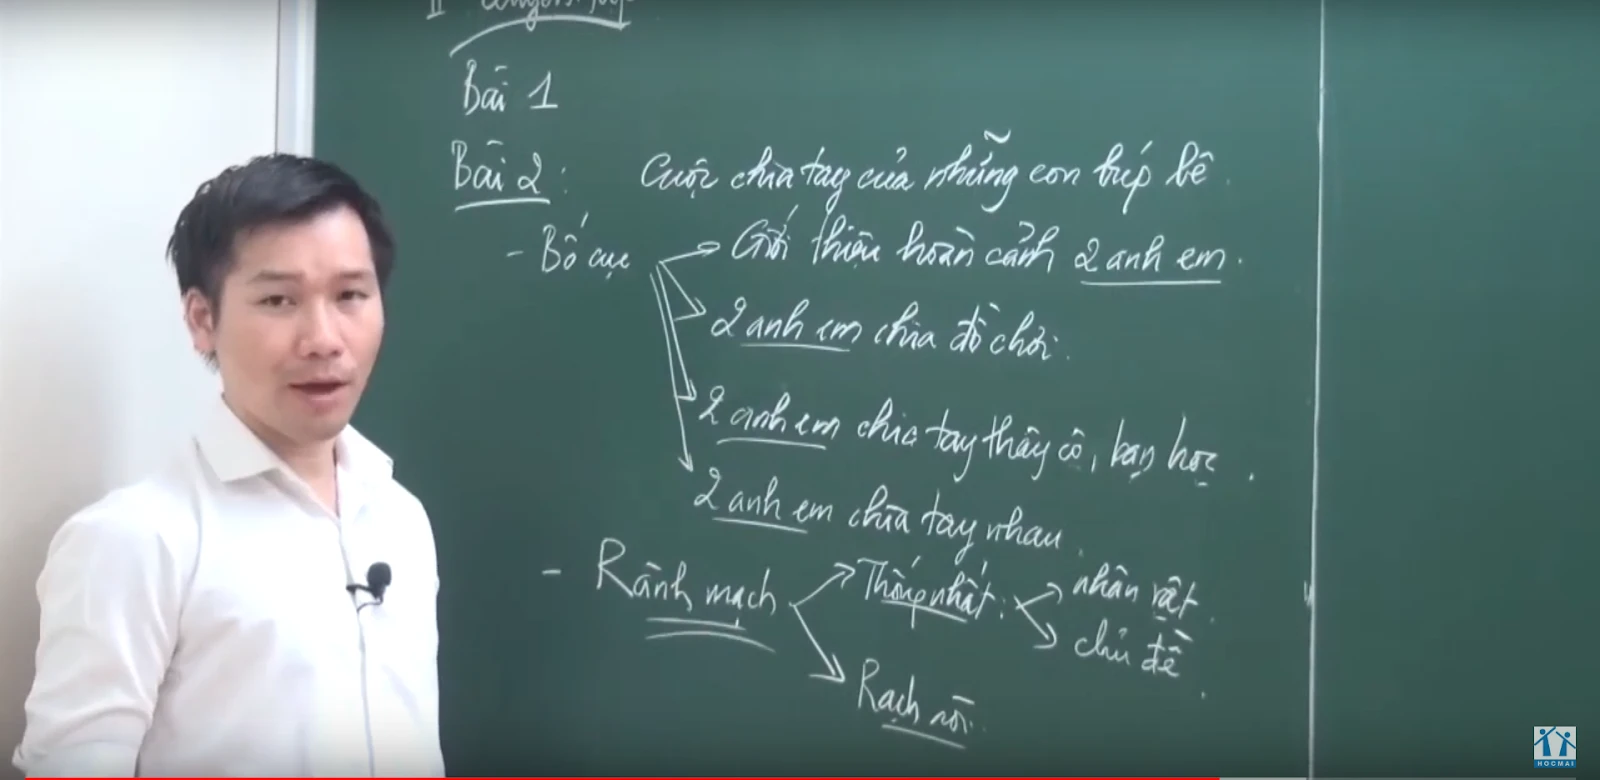 II
Bài 1
Bài 2 : Cuộc chia tay của những con búp bê.
- Bố cục → Giới thiệu hoàn cảnh 2 anh em.
→ 2 anh em chia đồ chơi.
→ 2 anh em chia tay thầy cô, bạn học.
→ 2 anh em chia tay nhau.
- Rành mạch → Thống nhất : → nhân vật.
→ chủ đề.
→ Rạch ròi.
HOCMAI